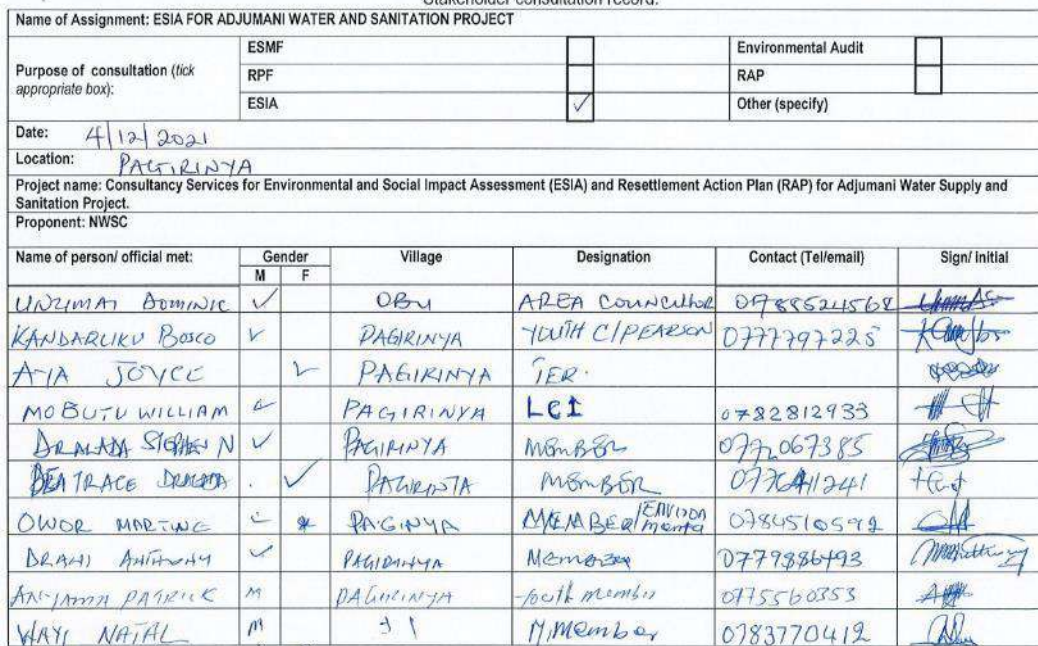 Stakeholder consultation record.
Name of Assignment: ESIA FOR ADJUMANI WATER AND SANITATION PROJECT
Purpose of consultation (tick appropriate box):
ESMF Environmental Audit
RPF RAP
ESIA ✓ Other (specify)
Date: 4/12/2021
Location: PAGIRINYA
Project name: Consultancy Services for Environmental and Social Impact Assessment (ESIA) and Resettlement Action Plan (RAP) for Adjumani Water Supply and
Sanitation Project.
Proponent: NWSC
Name of person/ official met: Gender Village Designation Contact (Tel/email) Sign/ initial
M F
UNZIMAI DOMINIC ✓ OBU AREA COUNCILLOR 0788524568
KANDARUKU BOSCO ✓ PAGIRINYA YOUTH C/PEARSON 0777797225
JOYCE ✓ PAGIRINYA
MOBUTU WILLIAM ✓ PAGIRINYA LC1 0782812933
✓ PAGIRINYA MEMBER 0772067385
BEATRACE ✓ MEMBER
OWOR MARTINE ✓ PAGINYA MEMBER 0784510592
DRANI ANTHONY ✓ Member 0779886493
PATRICK M PAGIRINYA youth member 0775560353
WAYI NATAL M Member 0783770412